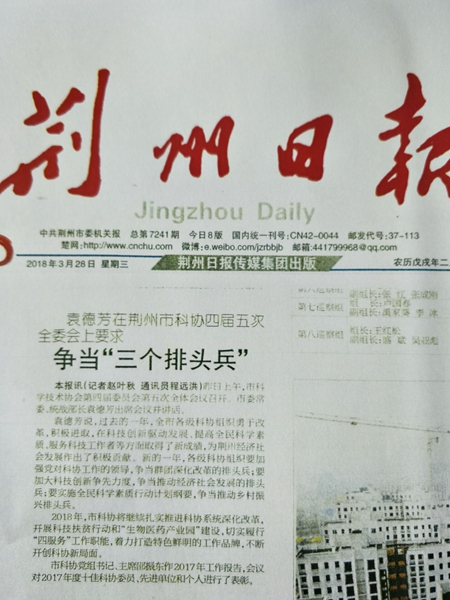 荆州日报
Jingzhou Daily
中共荆州市委机关报 总第7241期 今日8版 国内统一刊号:CN42-0044 邮发代号:37-113
楚网:http://www.cnchu.com 微博:e.weibo.com/jzrbbjb 邮箱:441799968@qq.com
2018年3月28日 星期三
荆州日报传媒集团出版
农历戊戌年二
袁德芳在荆州市科协四届五次
全委会上要求
争当“三个排头兵”
本报讯(记者赵叶秋 通讯员程远洪)昨日上午,市科
学技术协会第四届委员会第五次全体会议召开。市委常
委、统战部长袁德芳出席会议并讲话。
袁德芳说,过去的一年,全市各级科协组织勇于改
革,积极进取,在科技创新驱动发展、提高全民科学素
质、服务科技工作者等方面取得了新成绩,为荆州经济社
会发展作出了积极贡献。新的一年,各级科协组织要加
强党对科协工作的领导,争当群团深化改革的排头兵;要
加大科技创新争先力度,争当推动经济社会发展的排头
兵;要实施全民科学素质行动计划纲要,争当推动乡村振
兴排头兵。
2018年,市科协将继续扎实推进科协系统深化改革,
开展科技扶贫行动和“生物医药产业园”建设,切实履行
“四服务”工作职能,着力打造特色鲜明的工作品牌,不断
开创科协新局面。
市科协党组书记、主席邵振东作2017年工作报告,会议
对2017年度十佳科协委员、先进单位和个人进行了表彰。
副组长:张 红
第七巡察组 组 长:卢国春
副组长:禹家荣 李 冰
第八巡察组 组长:王红松
副组长:潘 斌